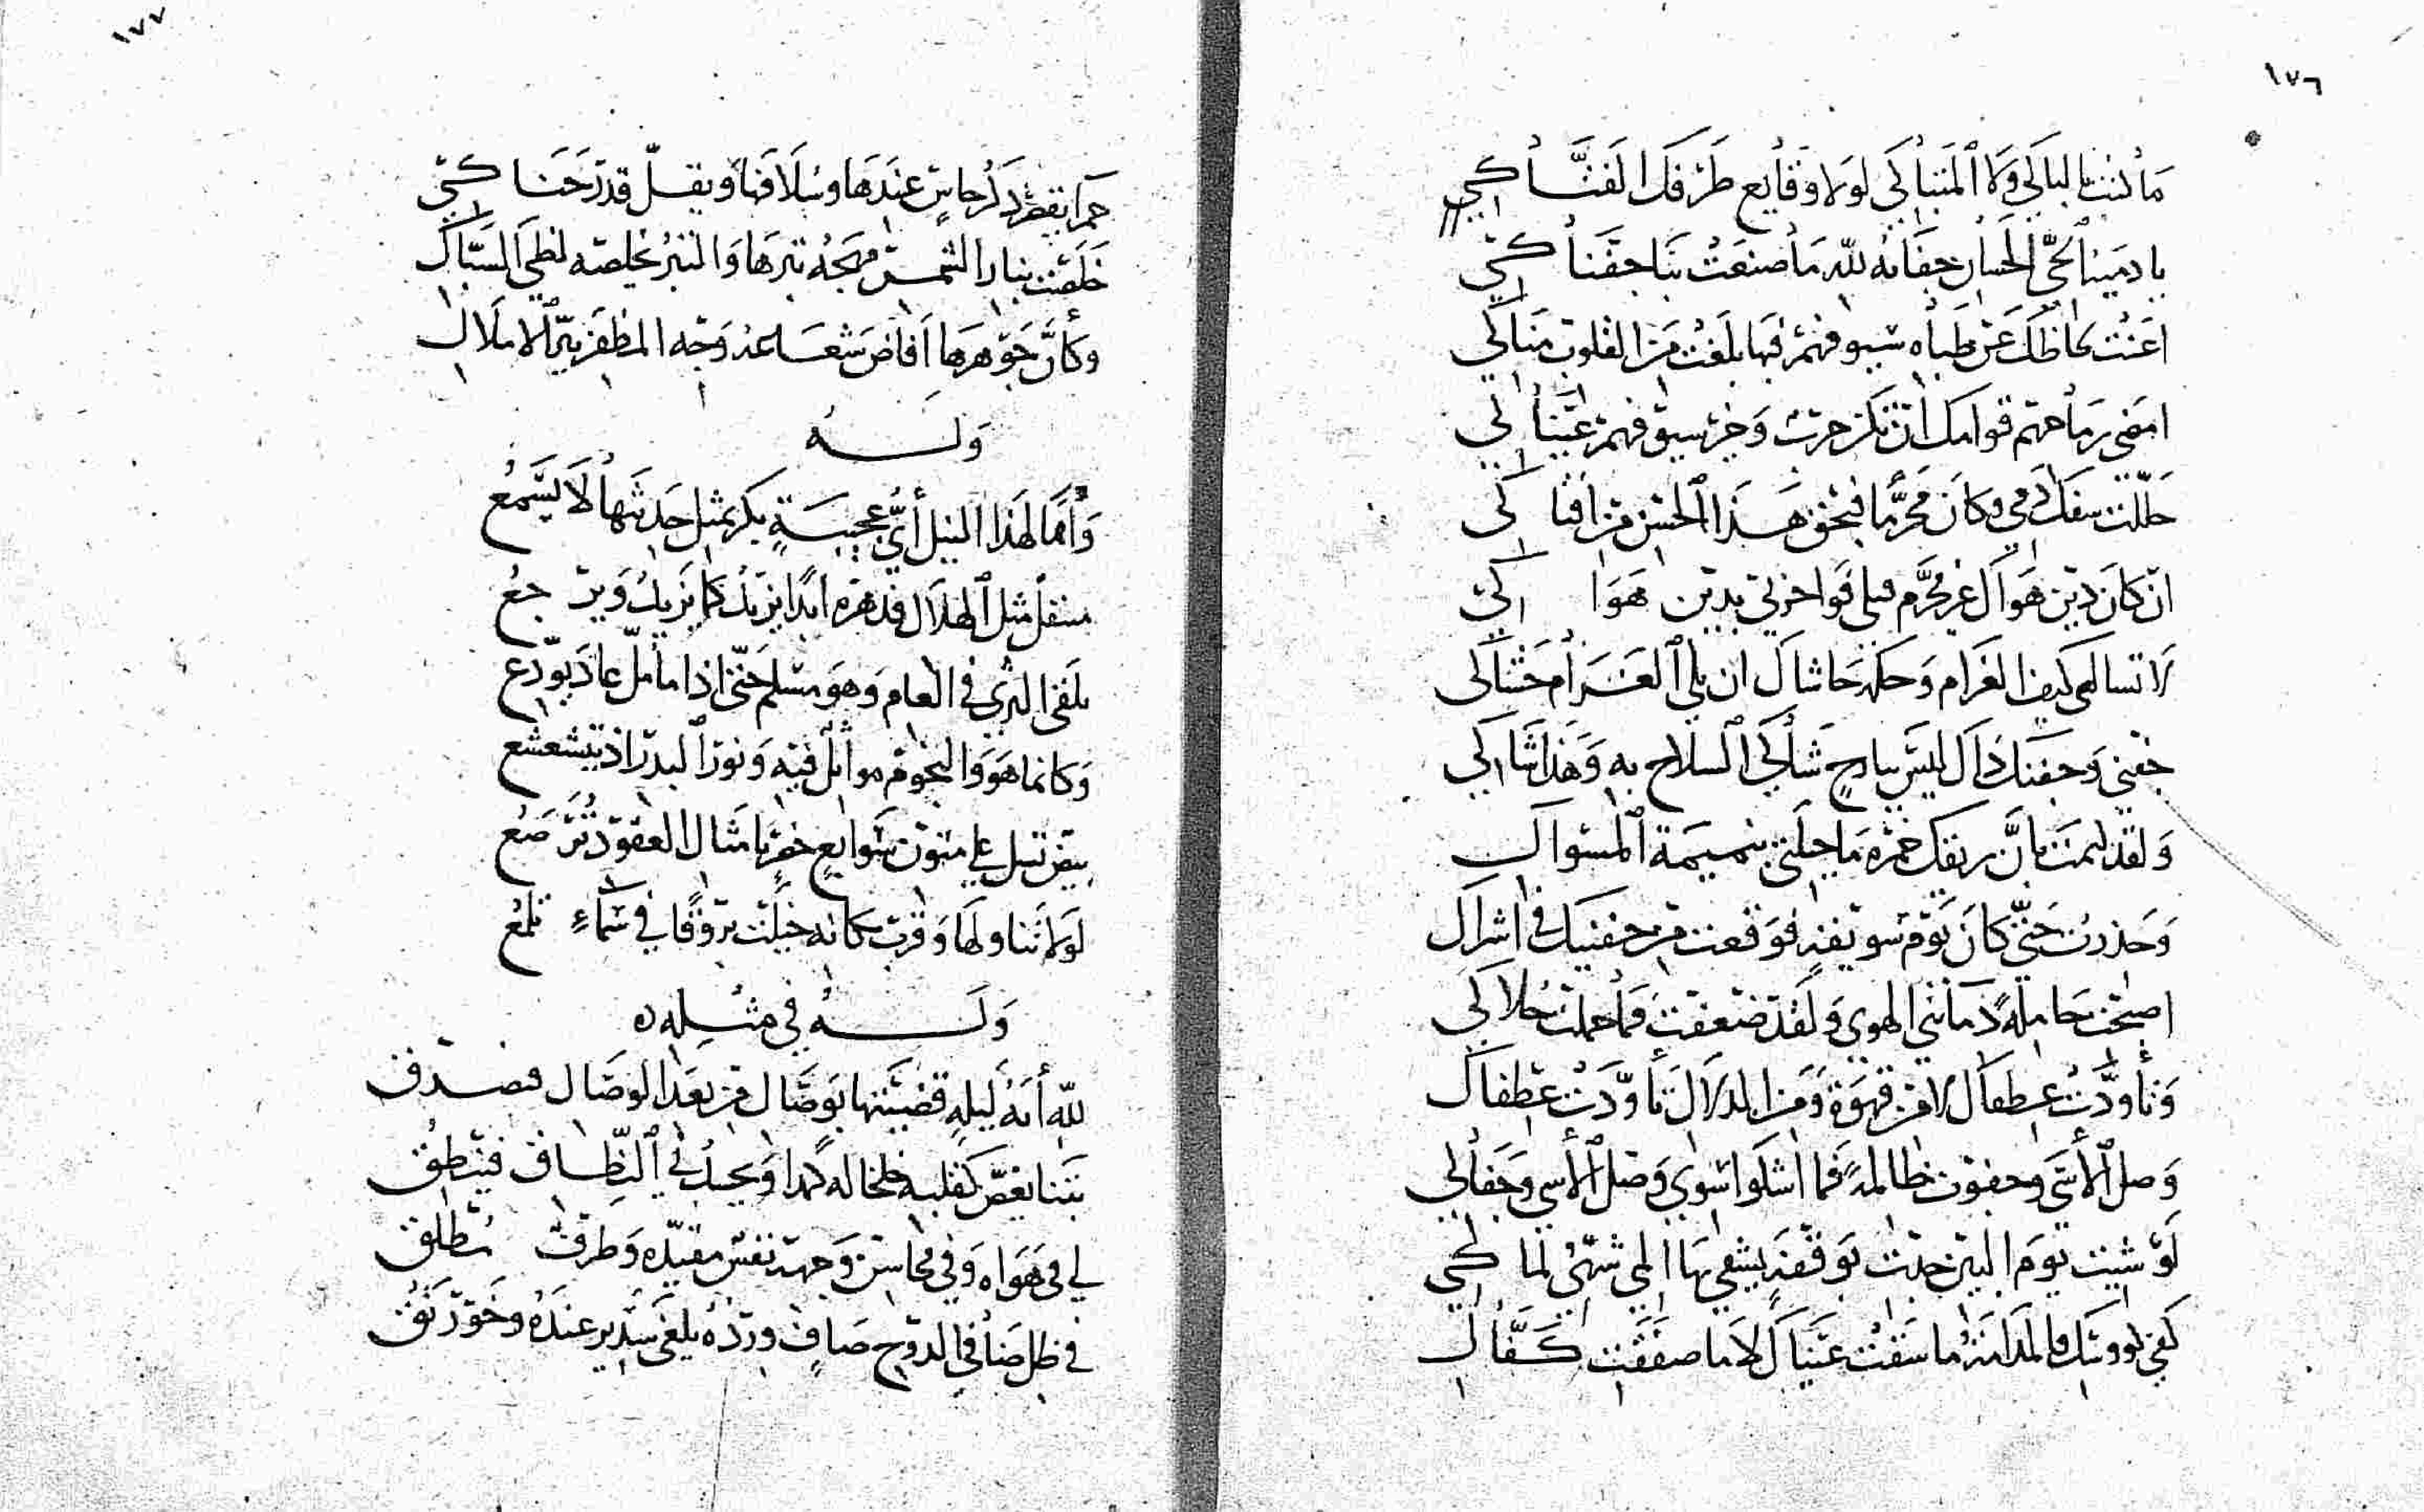 ١٧٦
ما كنت بالباكي ولا المتباكي لولا وقايع طرفك الفتاك
يا دمية الحي الحسان جفانه لله ما صنعت بنا جفناك
اغنت لحاظك عن ظباه سيوفهم فيها بلغت من القلوب مناك
امضى رماحهم قوامك ان تكن حرب وخير سيوفهم عيناك
حللت سفك دمي وكان محرما فبحق هذا الحسن من افتاك
ان كان دين هواك غير محرم قتلي فواحزني بدين هواك
لا تسالي كيف الغرام وحكمه حاشاك ان يلي الغرام حشاك
جفني وجفنك ذاك ليس ببارح شاكي السلاح به وهذا شاكي
ولقد ليمت بان ريقك خمرة ما جلتني بنميمة المسواك
وحذرت حتى كان يوم سويقة فوقعت من جفنيك في اشراك
اصبحت حاملة دمانتي الهوى ولقد ضعفت فما حملت حلاك
وتأودت عطفاك لا من قهوة ومن الدلال تأودت عطفاك
وصل الأسى وجفوت ظالمة فما اشكو سوى وصل الأسى وجفاك
لو شيت يوم البين جدت بوقفة يشفي بها الم شهي لماك
كفى فالمدامة ما سقت عيناك لا ما صفقت كفاك
١٧٧
حمرا يقصر ذكر جاس عندها وسلافها ويقل قدر حناك
خلصت بنار الشمس مهجة تبرها والتبر يخلصه لظى السباك
وكأن جوهرها افاض شعاعه وجه المظفر نير الاملاك
وله
واها لهذا النيل أي عجيبة بكر بمثل حديثها لا يسمع
متنقل مثل الهلال فدهره ابدا يزيد كما يزيد ويرجع
يلقى الثرى في العام وهو مسلم حتى اذا ما مل عاد يودع
وكانما هو والنجوم مواثل فيه ونور البدر اذ يتشعشع
بيض تسل على متون سوابغ خضر بامثال العقود ترصع
لولا تناولها وقرب مكانه خيلت بروقا في سماء تلمع
وله في مثله
لله أية ليلة قضيتها بوصال من بعد الوصال فصدف
بتنا يغص كقلبه خلخاله كمدا ويجد في النطاق فينطق
لي في هواه وفي محاسن وجهه نفس مقيده وطرف مطلق
في ظل ضافي الدوح صاف ورده يلغى سدير عنده وخورنق